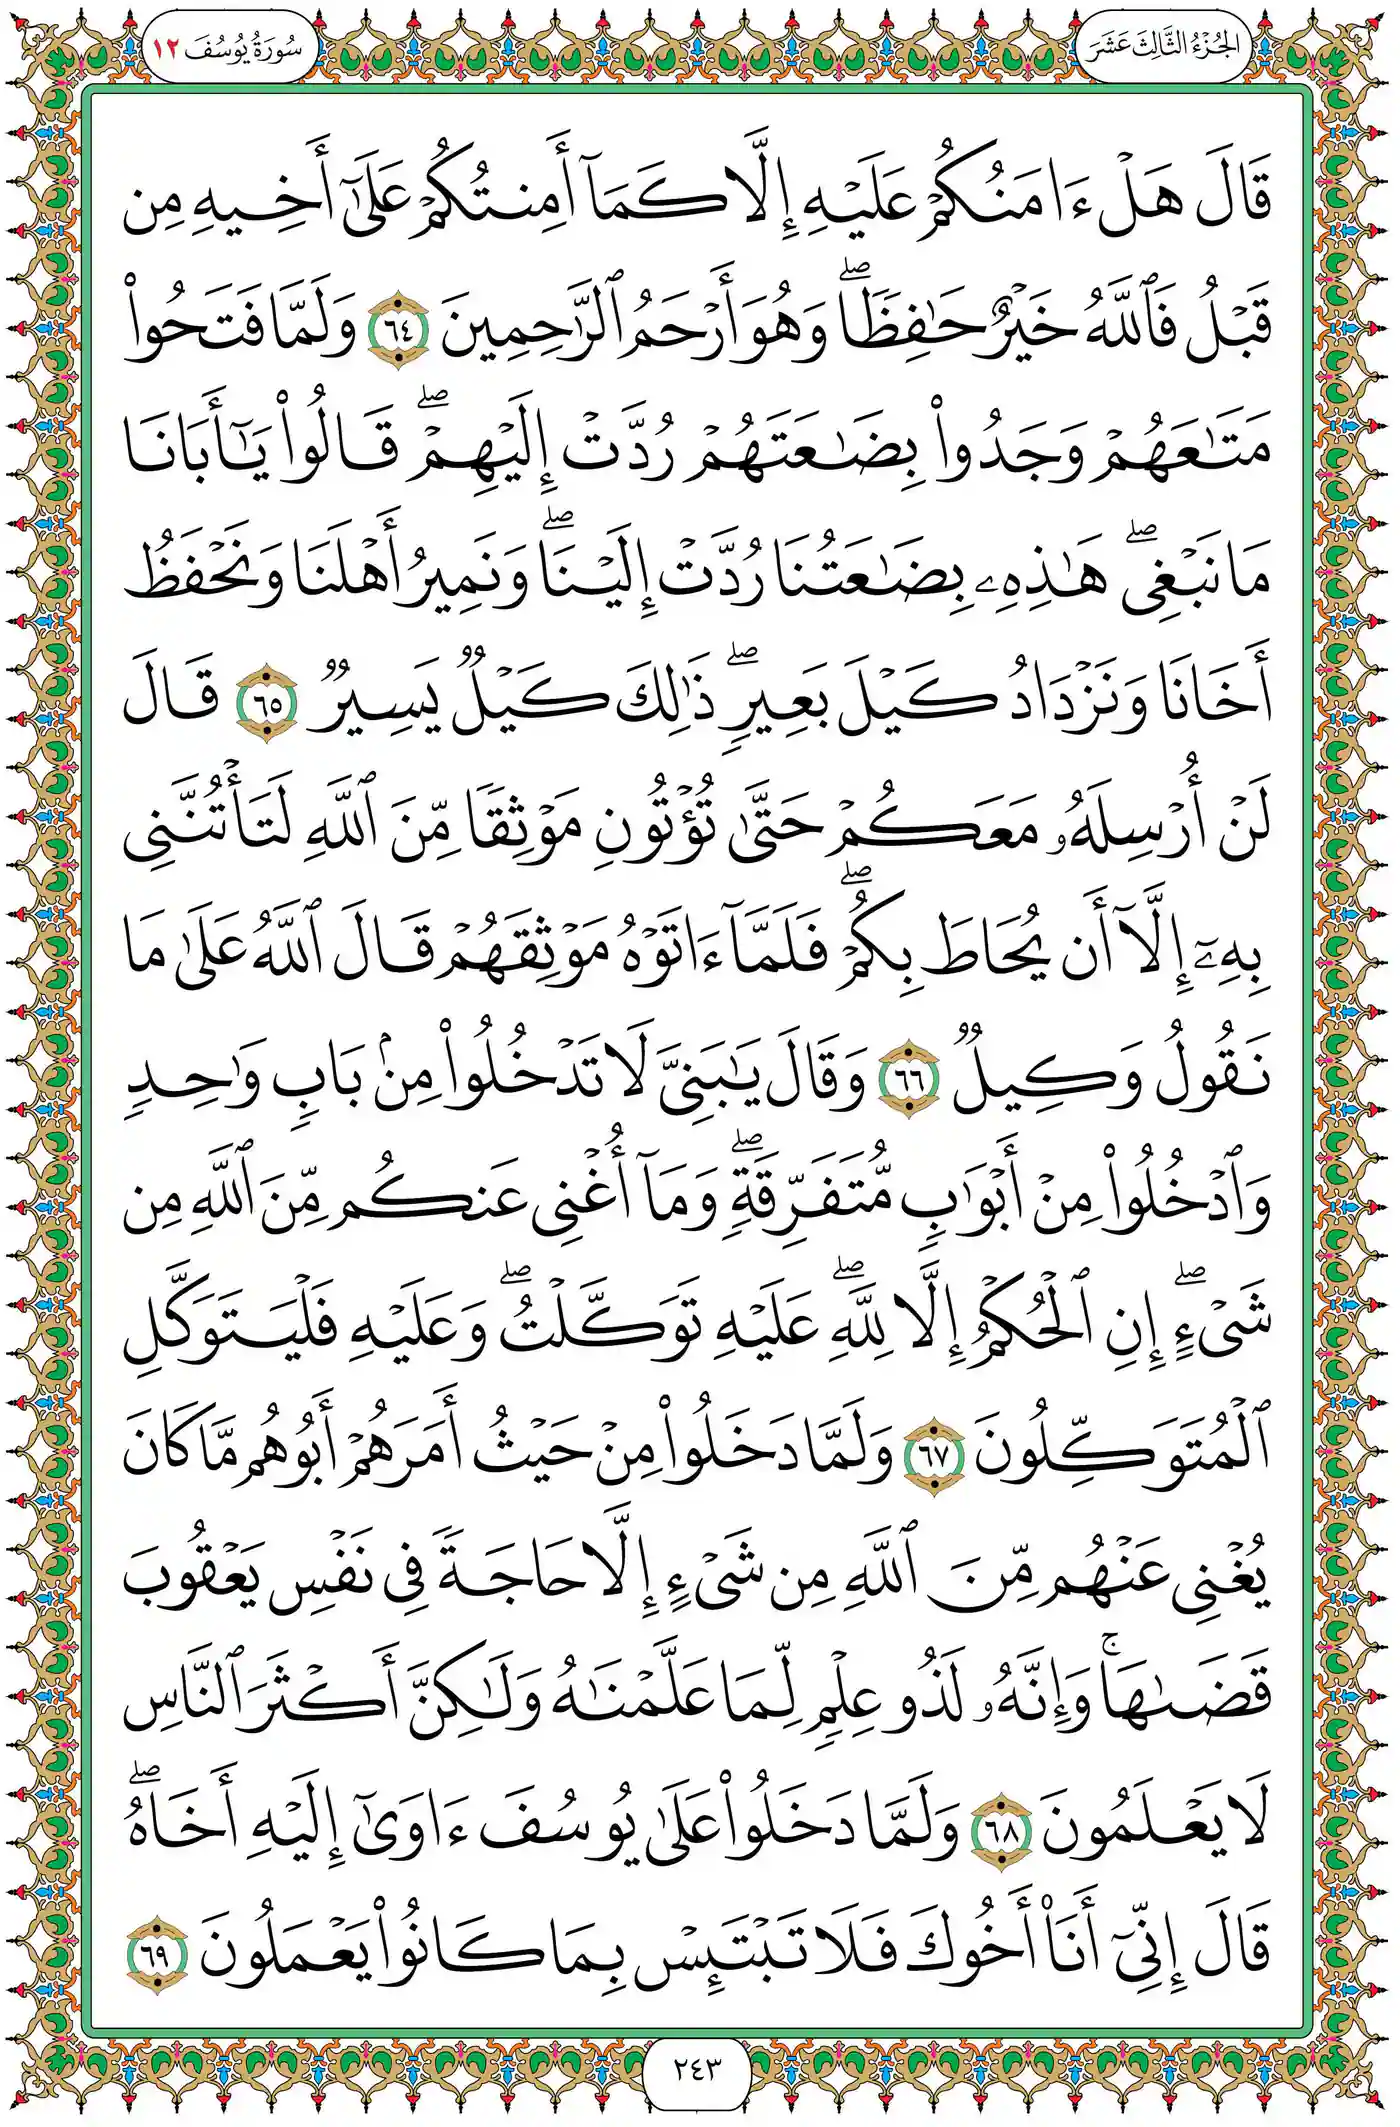 الجُزْءُ الثَّالِثَ عَشَرَ
سُورَةُ يُوسُفَ ١٢
قَالَ هَلْ ءَامَنُكُمْ عَلَيْهِ إِلَّا كَمَآ أَمِنتُكُمْ عَلَىٰٓ أَخِيهِ مِن
قَبْلُ فَٱللَّهُ خَيْرٌ حَٰفِظًاۖ وَهُوَ أَرْحَمُ ٱلرَّٰحِمِينَ ٦٤ وَلَمَّا فَتَحُوا۟
مَتَٰعَهُمْ وَجَدُوا۟ بِضَٰعَتَهُمْ رُدَّتْ إِلَيْهِمْۖ قَالُوا۟ يَٰٓأَبَانَا
مَا نَبْغِىۖ هَٰذِهِۦ بِضَٰعَتُنَا رُدَّتْ إِلَيْنَاۖ وَنَمِيرُ أَهْلَنَا وَنَحْفَظُ
أَخَانَا وَنَزْدَادُ كَيْلَ بَعِيرٍۖ ذَٰلِكَ كَيْلٌ يَسِيرٌ ٦٥ قَالَ
لَنْ أُرْسِلَهُۥ مَعَكُمْ حَتَّىٰ تُؤْتُونِ مَوْثِقًا مِّنَ ٱللَّهِ لَتَأْتُنَّنِى
بِهِۦٓ إِلَّآ أَن يُحَاطَ بِكُمْۖ فَلَمَّآ ءَاتَوْهُ مَوْثِقَهُمْ قَالَ ٱللَّهُ عَلَىٰ مَا
نَقُولُ وَكِيلٌ ٦٦ وَقَالَ يَٰبَنِىَّ لَا تَدْخُلُوا۟ مِنۢ بَابٍ وَٰحِدٍ
وَٱدْخُلُوا۟ مِنْ أَبْوَٰبٍ مُّتَفَرِّقَةٍۖ وَمَآ أُغْنِى عَنكُم مِّنَ ٱللَّهِ مِن
شَىْءٍۖ إِنِ ٱلْحُكْمُ إِلَّا لِلَّهِۖ عَلَيْهِ تَوَكَّلْتُۖ وَعَلَيْهِ فَلْيَتَوَكَّلِ
ٱلْمُتَوَكِّلُونَ ٦٧ وَلَمَّا دَخَلُوا۟ مِنْ حَيْثُ أَمَرَهُمْ أَبُوهُم مَّا كَانَ
يُغْنِى عَنْهُم مِّنَ ٱللَّهِ مِن شَىْءٍ إِلَّا حَاجَةً فِى نَفْسِ يَعْقُوبَ
قَضَىٰهَاۚ وَإِنَّهُۥ لَذُو عِلْمٍ لِّمَا عَلَّمْنَٰهُ وَلَٰكِنَّ أَكْثَرَ ٱلنَّاسِ
لَا يَعْلَمُونَ ٦٨ وَلَمَّا دَخَلُوا۟ عَلَىٰ يُوسُفَ ءَاوَىٰٓ إِلَيْهِ أَخَاهُۖ
قَالَ إِنِّىٓ أَنَا۠ أَخُوكَ فَلَا تَبْتَئِسْ بِمَا كَانُوا۟ يَعْمَلُونَ ٦٩
٢٤٣